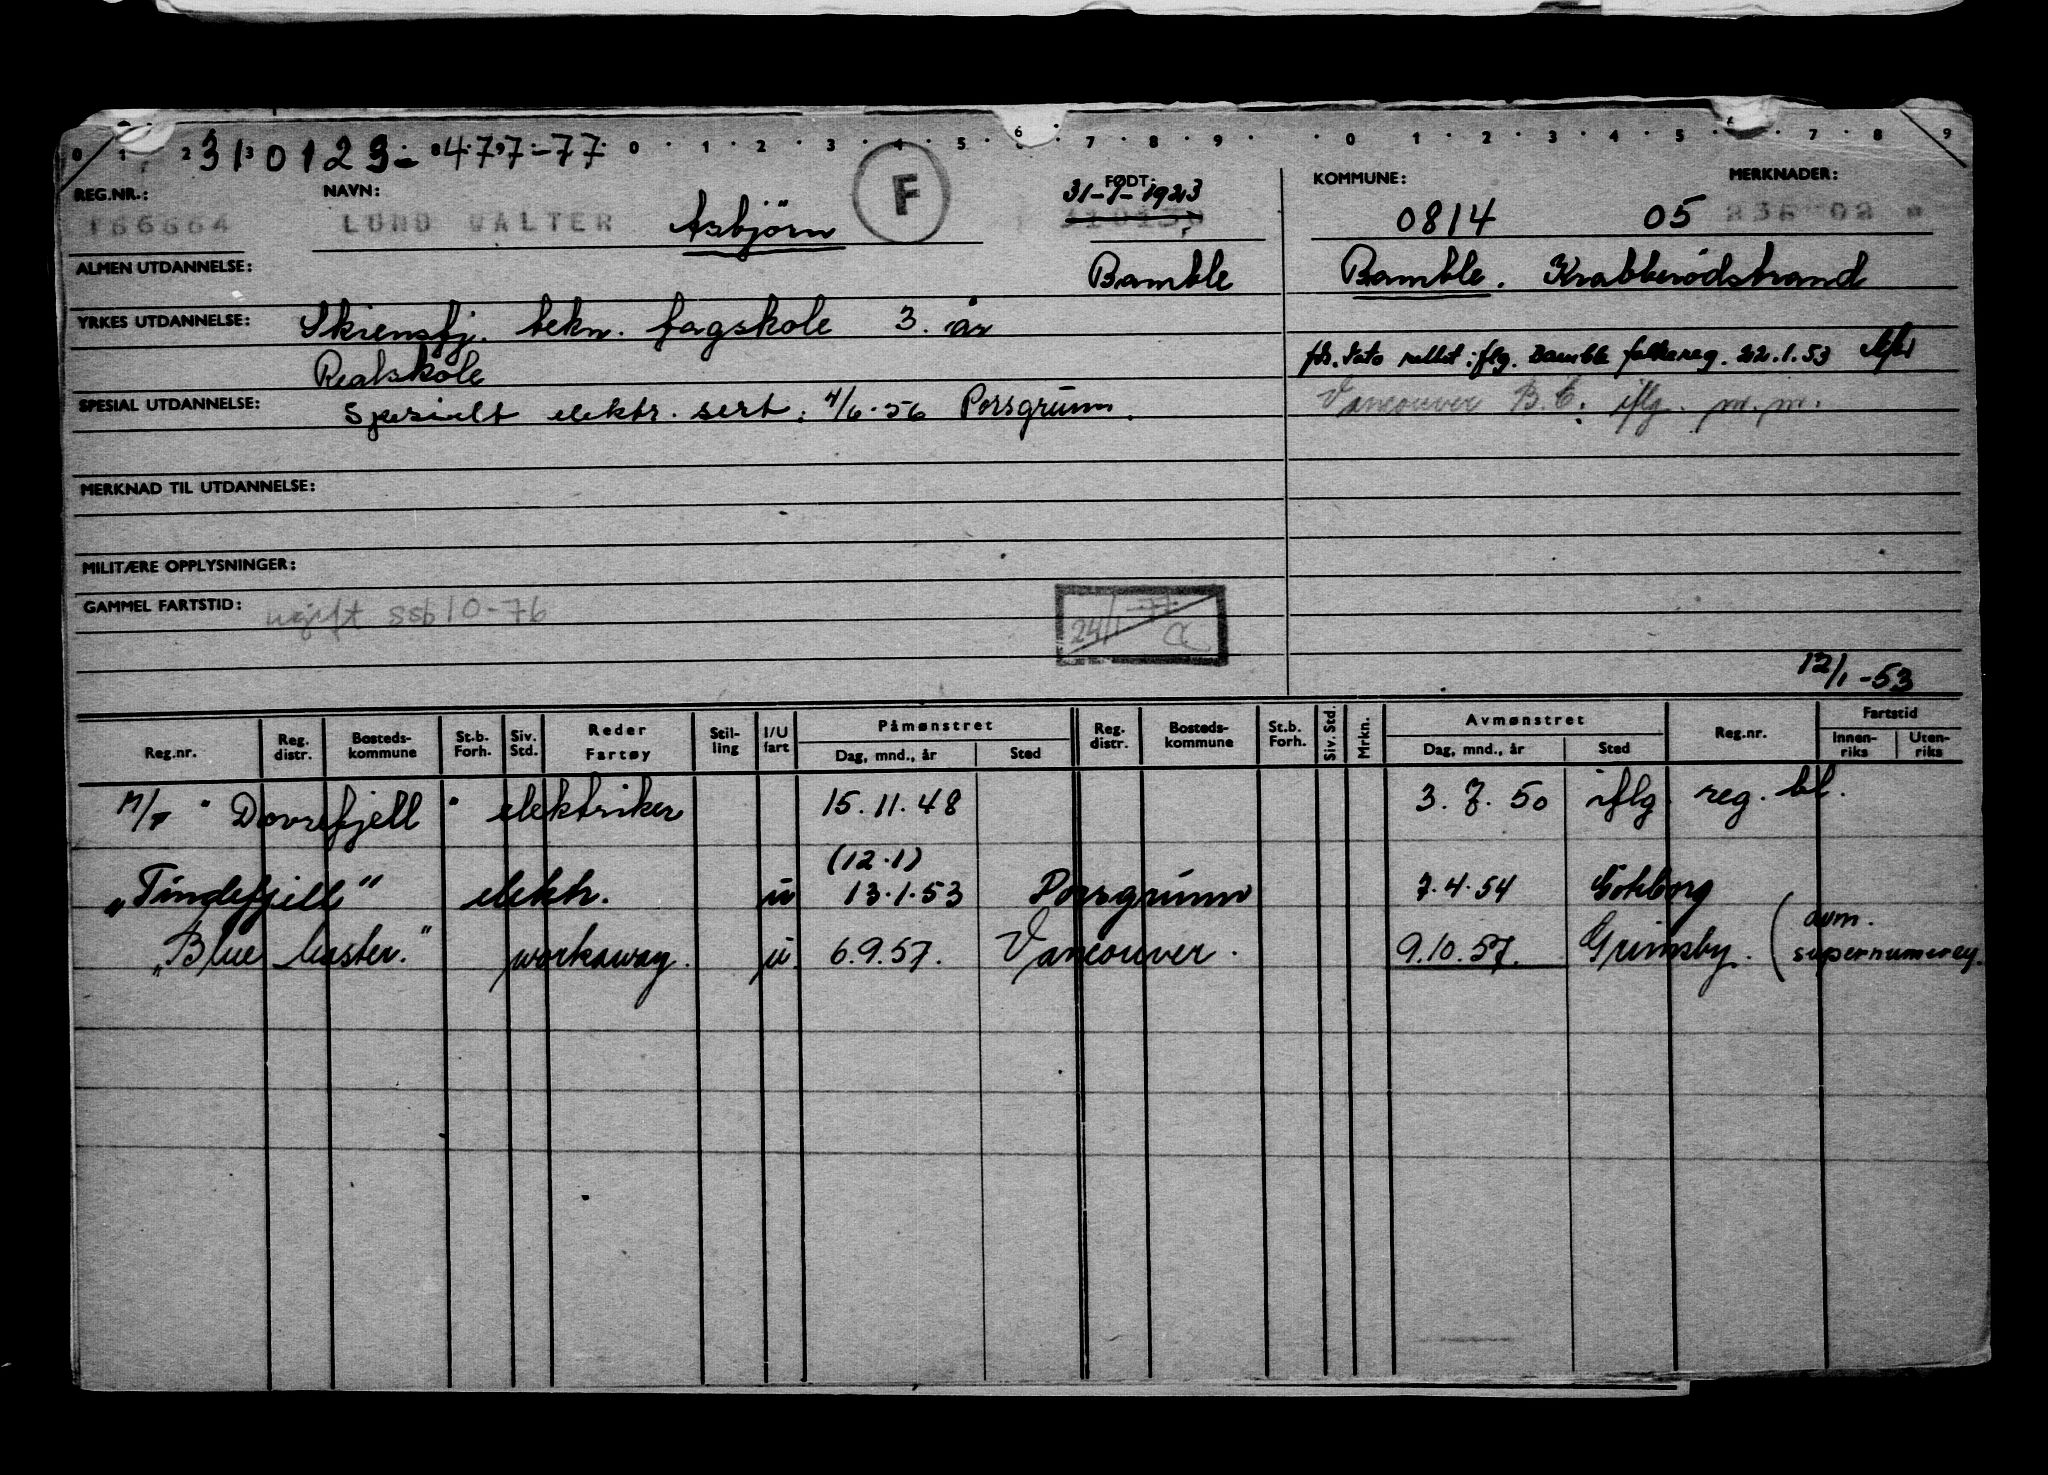 0 1 2 3 0 1 2 3 4 5 6 7 8 9 0 1 2 3 4 5 7 8 9
310123-477-77
REG.NR.: NAVN: FØDT: KOMMUNE: MERKNADER:
F
31-1-1923
166664 LUND WALTER Asbjörn 0814 05 236 02
ALMEN UTDANNELSE: Bamble Bamble. Krabberødstrand
YRKES UTDANNELSE: Skiensfj. tekn. fagskole 3. år
Realskole
fds. dato rettet iflg. Bamble folkereg. 22.1.53
SPESIAL UTDANNELSE: Spesielt elektr. sert. 4/6-56 Porsgrunn.
Vancouver B.C. iflg. m.m.
MERKNAD TIL UTDANNELSE:
MILITÆRE OPPLYSNINGER:
GAMMEL FARTSTID: ugift ssb 10-76
24/1-77 a
12/1-53
Reg.nr. Reg. distr. Bosteds-kommune St.b. Forh. Siv. Std. Reder Fartøy Stil-ling I/U fart Påmønstret Dag, mnd., år Sted Reg. distr. Bosteds-kommune St.b. Forh. Siv. Std. Mrkn. Avmønstret Dag, mnd., år Sted Reg.nr. Fartstid Innen-riks Uten-riks
M/T "Dovrefjell" elektriker 15.11.48 3.7.50 iflg. reg. bl.
(12.1)
"Tindefjell" elektr. u 13.1.53 Porsgrunn 7.4.54 Göteborg
"Blue Master." workaway. u 6.9.57. Vancouver. 9.10.57. Grimsby. (avm.
supernumerey.